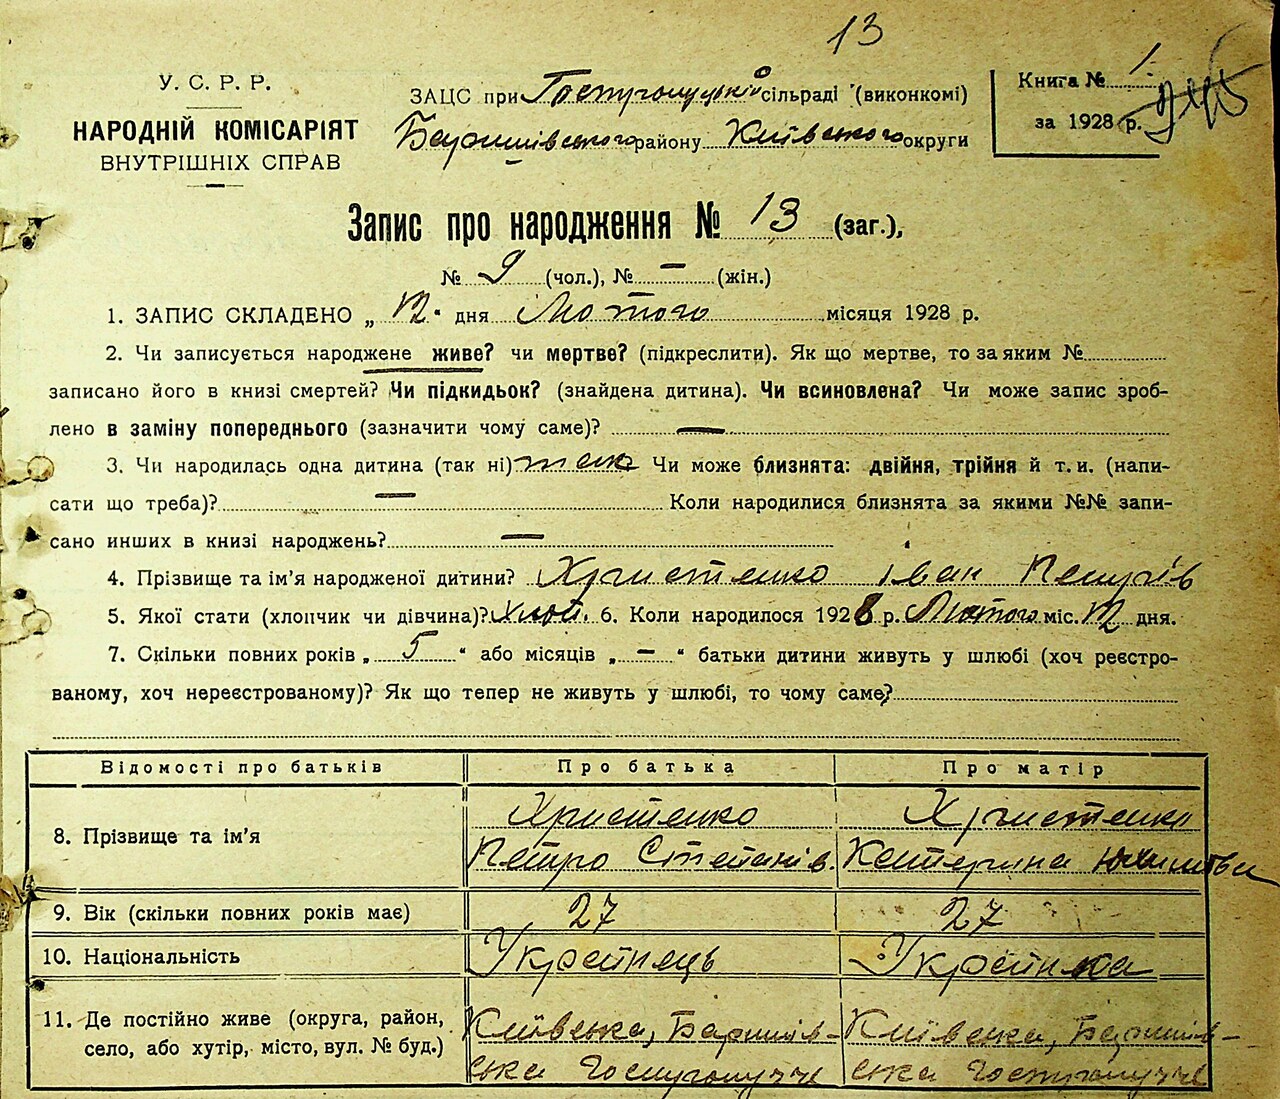 13
У. С. Р. Р.
НАРОДНІЙ КОМІСАРІЯТ
ВНУТРІШНІХ СПРАВ
ЗАЦС при Гостролуцькій сільраді (виконкомі)
Баришівського району Київського округи
Книга № 1
за 1928 р.
Запис про народження № 13 (заг.),
№ 9 (чол.), № — (жін.)
1. ЗАПИС СКЛАДЕНО „12" дня Лютого місяця 1928 р.
2. Чи записується народжене живе? чи мертве? (підкреслити). Як що мертве, то за яким №
записано його в книзі смертей? Чи підкидьок? (знайдена дитина). Чи всиновлена? Чи може запис зроб-
лено в заміну попереднього (зазначити чому саме)? —
3. Чи народилась одна дитина (так ні) так Чи може близнята: двійня, трійня й т. и. (напи-
сати що треба)? — Коли народилися близнята за якими №№ запи-
сано инших в книзі народжень? —
4. Прізвище та ім'я народженої дитини? Христенко Іван Петрів
5. Якої стати (хлопчик чи дівчина)? Хлоп. 6. Коли народилося 1928 р. Лютого міс. 12 дня.
7. Скільки повних років „5" або місяців „—" батьки дитини живуть у шлюбі (хоч реєстро-
ваному, хоч нереєстрованому)? Як що тепер не живуть у шлюбі, то чому саме?
Відомості про батьків Про батька Про матір
8. Прізвище та ім'я Христенко Петро Степанів. Христенко Катерина
9. Вік (скільки повних років має) 27 27
10. Національність Українець Українка
11. Де постійно живе (округа, район, Київська, Баришів- Київська, Баришів-
село, або хутір, місто, вул. № буд.) ська Гостролуччє ська Гостролуччє